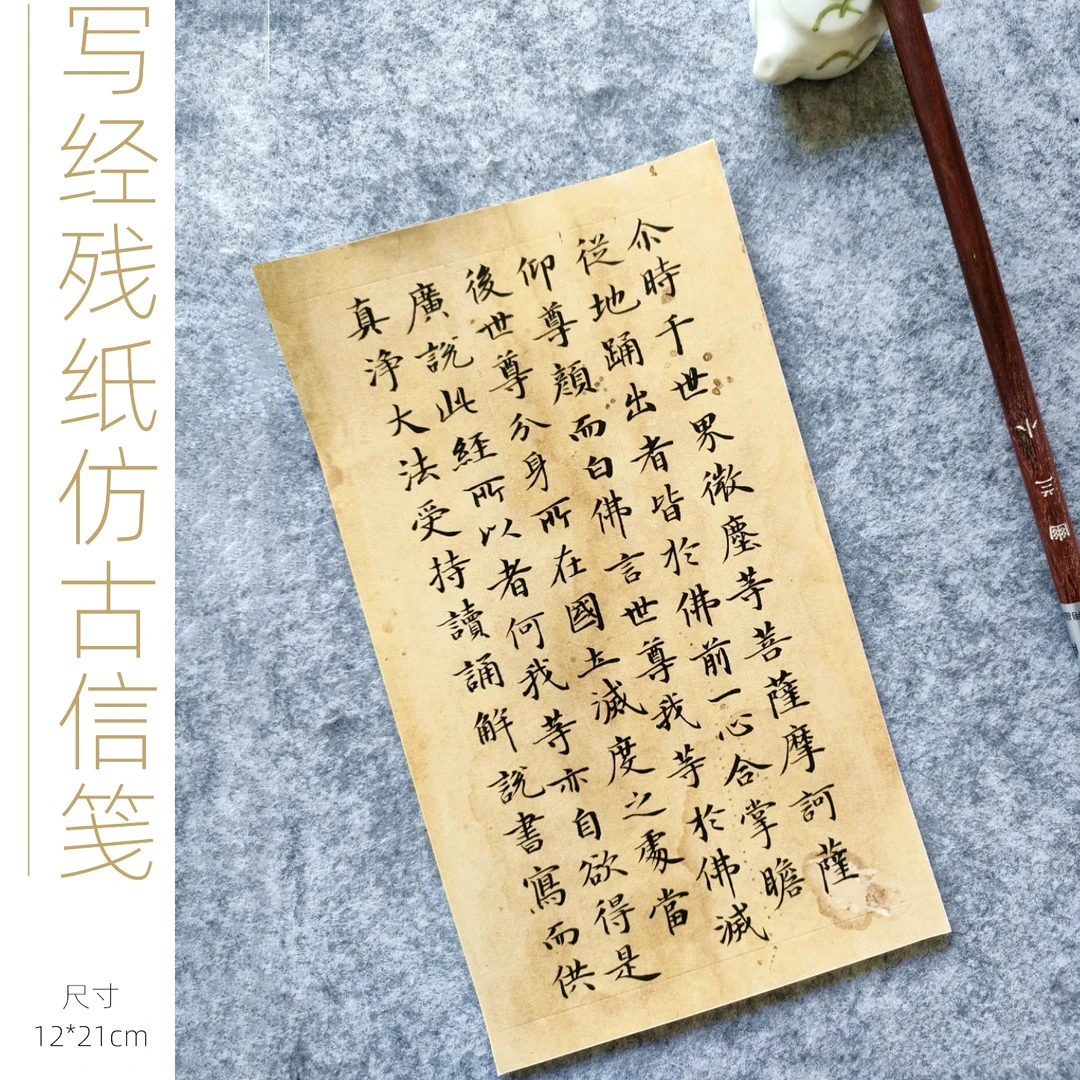 写经残纸仿古信笺
尺寸
12*21cm
尒時千世界微塵等菩薩摩訶薩
從地踊出者皆於佛前一心合掌瞻
仰尊顏而白佛言世尊我等於佛滅
後世尊分身所在國土滅度之處當
廣說此經所以者何我等亦自欲得是
真淨大法受持讀誦解說書寫而供